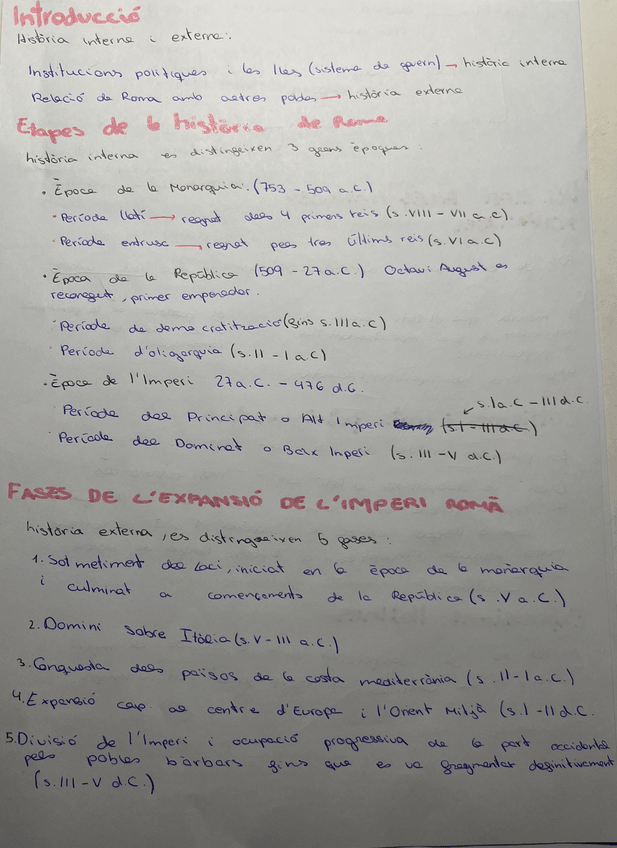 Introducció
Història interna i externa:
Institucions polítiques i les lleis (sistema de govern) → història interna
Relació de Roma amb altres pobles → història externa
Etapes de la història de Roma
història interna es distingeixen 3 grans èpoques:
• Època de la Monarquia: (753 - 509 a.C.)
• Període llatí → regnat dels 4 primers reis (s. VIII - VII a.C).
• Període entrusc → regnat pels tres últims reis (s. VI a.C)
• Època de la República (509 - 27 a.C.) Octavi August es
reconegut, primer emperador.
Període de democratització (fins s. III a.C)
• Període d'oligarquia (s. II - I a C)
• Època de l'Imperi 27 a.C. - 476 d.C.
s. I a.C - III d.C.
Període del Principat o Alt Imperi (s I - III d.C)
Període del Dominat o Baix Inperi (s. III - V d.C.)
FASES DE L'EXPANSIÓ DE L'IMPERI ROMÀ
història externa, es distingeixen 5 fases:
1. Sotmetiment del Laci, iniciat en la època de la monarquia
i culminat a començaments de la República (s. V a.C.)
2. Domini sobre Itàlia (s. V - III a.C.)
3. Conquesta dels països de la costa mediterrània (s. II - I a.C.)
4. Expansió cap al centre d'Europa i l'Orient Mitjà (s. I - II d.C.
5. Divisió de l'Imperi i ocupació progressiva de la part occidental
pels pobles bàrbars fins que es va fragmentar definitivament
(s. III - V d.C.)